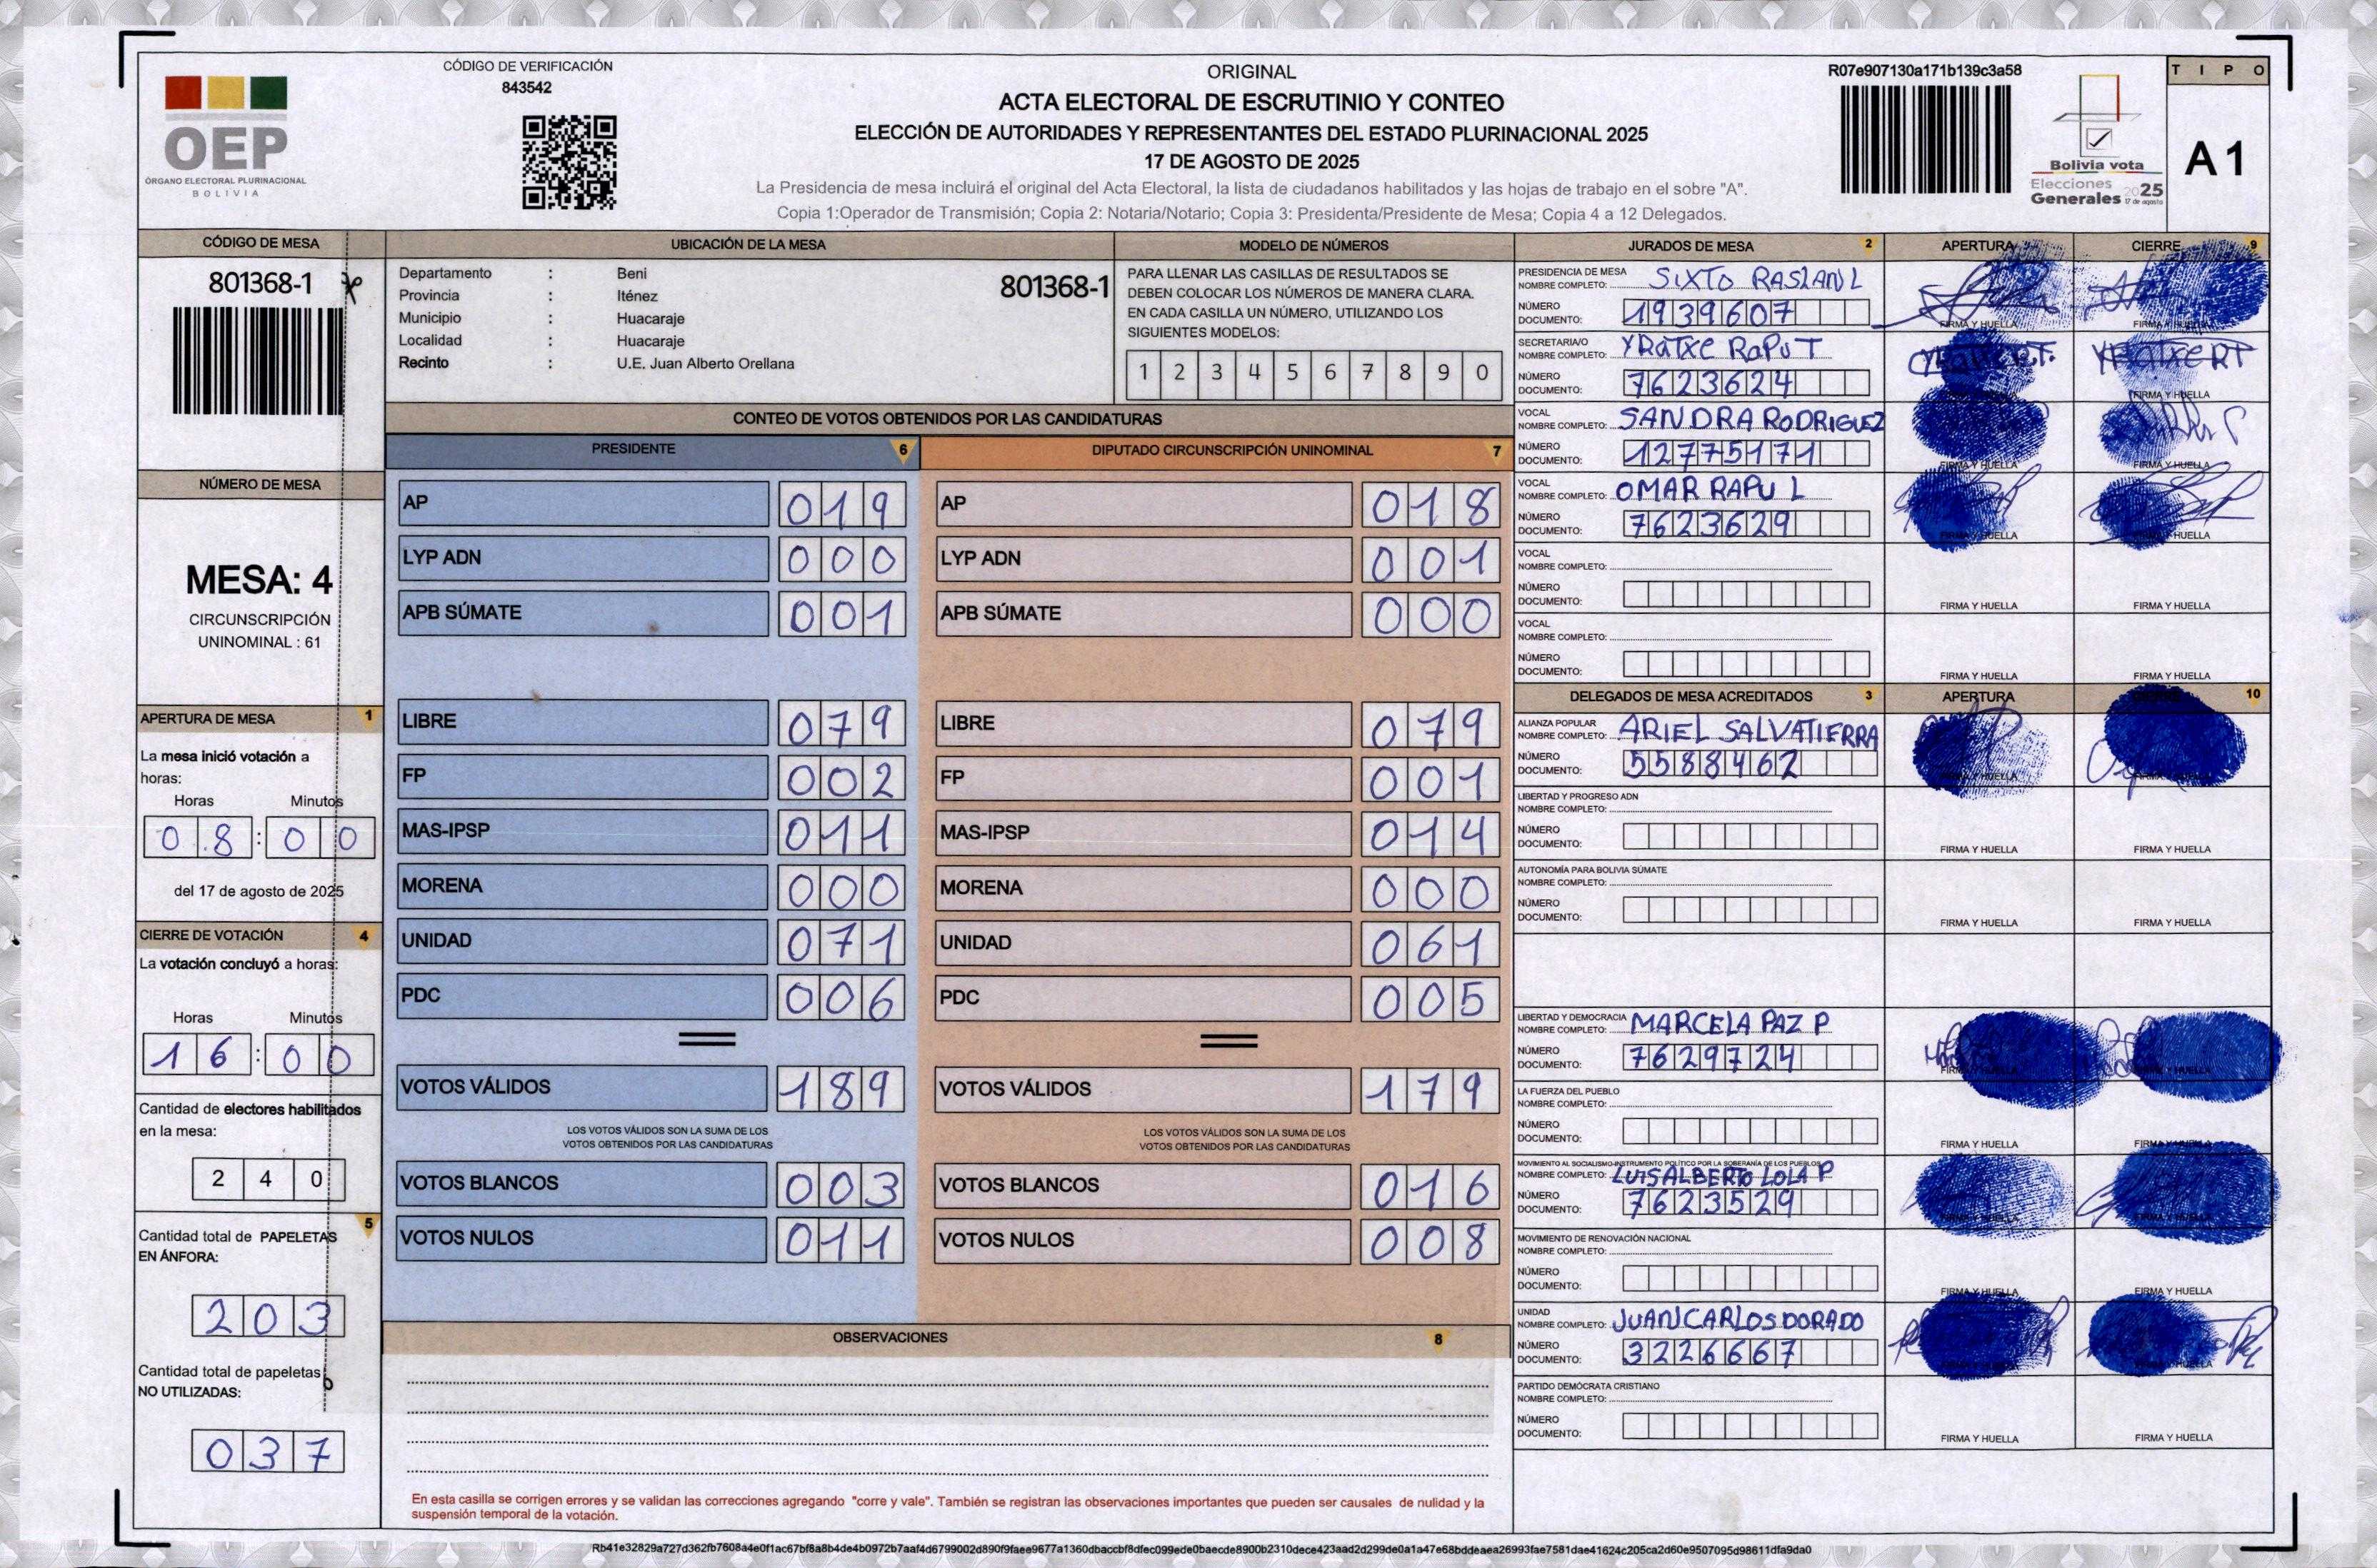 OEP
ÓRGANO ELECTORAL PLURINACIONAL
BOLIVIA
CÓDIGO DE VERIFICACIÓN
843542
ORIGINAL
ACTA ELECTORAL DE ESCRUTINIO Y CONTEO
ELECCIÓN DE AUTORIDADES Y REPRESENTANTES DEL ESTADO PLURINACIONAL 2025
17 DE AGOSTO DE 2025
La Presidencia de mesa incluirá el original del Acta Electoral, la lista de ciudadanos habilitados y las hojas de trabajo en el sobre "A".
Copia 1:Operador de Transmisión; Copia 2: Notaria/Notario; Copia 3: Presidenta/Presidente de Mesa; Copia 4 a 12 Delegados.
R07e907130a171b139c3a58
Bolivia vota
Elecciones 2025
Generales 17 de agosto
TIPO
A1
CÓDIGO DE MESA
801368-1
NÚMERO DE MESA
MESA: 4
CIRCUNSCRIPCIÓN
UNINOMINAL : 61
APERTURA DE MESA 1
La mesa inició votación a
horas:
Horas Minutos
08:00
del 17 de agosto de 2025
CIERRE DE VOTACIÓN 4
La votación concluyó a horas:
Horas Minutos
16:00
Cantidad de electores habilitados
en la mesa:
240
5
Cantidad total de PAPELETAS
EN ÁNFORA:
203
Cantidad total de papeletas
NO UTILIZADAS:
037
UBICACIÓN DE LA MESA
Departamento : Beni
801368-1
Provincia : Iténez
Municipio : Huacaraje
Localidad : Huacaraje
Recinto : U.E. Juan Alberto Orellana
MODELO DE NÚMEROS
PARA LLENAR LAS CASILLAS DE RESULTADOS SE
DEBEN COLOCAR LOS NÚMEROS DE MANERA CLARA.
EN CADA CASILLA UN NÚMERO, UTILIZANDO LOS
SIGUIENTES MODELOS:
1 2 3 4 5 6 7 8 9 0
CONTEO DE VOTOS OBTENIDOS POR LAS CANDIDATURAS
PRESIDENTE 6
AP 019
LYP ADN 000
APB SÚMATE 001
LIBRE 079
FP 002
MAS-IPSP 011
MORENA 000
UNIDAD 071
PDC 006
VOTOS VÁLIDOS 189
LOS VOTOS VÁLIDOS SON LA SUMA DE LOS
VOTOS OBTENIDOS POR LAS CANDIDATURAS
VOTOS BLANCOS 003
VOTOS NULOS 011
DIPUTADO CIRCUNSCRIPCIÓN UNINOMINAL 7
AP 018
LYP ADN 001
APB SÚMATE 000
LIBRE 079
FP 001
MAS-IPSP 014
MORENA 000
UNIDAD 061
PDC 005
VOTOS VÁLIDOS 179
LOS VOTOS VÁLIDOS SON LA SUMA DE LOS
VOTOS OBTENIDOS POR LAS CANDIDATURAS
VOTOS BLANCOS 016
VOTOS NULOS 008
OBSERVACIONES 8
En esta casilla se corrigen errores y se validan las correcciones agregando "corre y vale". También se registran las observaciones importantes que pueden ser causales de nulidad y la
suspensión temporal de la votación.
JURADOS DE MESA 2 APERTURA CIERRE 9
PRESIDENCIA DE MESA
NOMBRE COMPLETO: SIXTO RASLAN L
NÚMERO
DOCUMENTO: 1939607
FIRMA Y HUELLA FIRMA Y HUELLA
SECRETARIA/O
NOMBRE COMPLETO: YRATXE RAPU T
NÚMERO
DOCUMENTO: 7623624
YRATXERT
FIRMA Y HUELLA
VOCAL
NOMBRE COMPLETO: SANDRA RODRIGUEZ
NÚMERO
DOCUMENTO: 12775171
FIRMA Y HUELLA FIRMA Y HUELLA
VOCAL
NOMBRE COMPLETO: OMAR RAPU L
NÚMERO
DOCUMENTO: 7623629
FIRMA Y HUELLA FIRMA Y HUELLA
VOCAL
NOMBRE COMPLETO:
NÚMERO
DOCUMENTO:
FIRMA Y HUELLA FIRMA Y HUELLA
VOCAL
NOMBRE COMPLETO:
NÚMERO
DOCUMENTO:
FIRMA Y HUELLA FIRMA Y HUELLA
DELEGADOS DE MESA ACREDITADOS 3 APERTURA 10
ALIANZA POPULAR
NOMBRE COMPLETO: ARIEL SALVATIERRA
NÚMERO
DOCUMENTO: 5588462
FIRMA Y HUELLA FIRMA Y HUELLA
LIBERTAD Y PROGRESO ADN
NOMBRE COMPLETO:
NÚMERO
DOCUMENTO:
FIRMA Y HUELLA FIRMA Y HUELLA
AUTONOMÍA PARA BOLIVIA SÚMATE
NOMBRE COMPLETO:
NÚMERO
DOCUMENTO:
FIRMA Y HUELLA FIRMA Y HUELLA
LIBERTAD Y DEMOCRACIA
NOMBRE COMPLETO: MARCELA PAZ P
NÚMERO
DOCUMENTO: 7629724
FIRMA Y HUELLA FIRMA Y HUELLA
LA FUERZA DEL PUEBLO
NOMBRE COMPLETO:
NÚMERO
DOCUMENTO:
FIRMA Y HUELLA FIRMA Y HUELLA
MOVIMIENTO AL SOCIALISMO-INSTRUMENTO POLÍTICO POR LA SOBERANÍA DE LOS PUEBLOS
NOMBRE COMPLETO: LUIS ALBERTO LOLA P
NÚMERO
DOCUMENTO: 7623529
FIRMA Y HUELLA FIRMA Y HUELLA
MOVIMIENTO DE RENOVACIÓN NACIONAL
NOMBRE COMPLETO:
NÚMERO
DOCUMENTO:
FIRMA Y HUELLA FIRMA Y HUELLA
UNIDAD
NOMBRE COMPLETO: JUAN CARLOS DORADO
NÚMERO
DOCUMENTO: 3226667
FIRMA Y HUELLA FIRMA Y HUELLA
PARTIDO DEMÓCRATA CRISTIANO
NOMBRE COMPLETO:
NÚMERO
DOCUMENTO:
FIRMA Y HUELLA FIRMA Y HUELLA